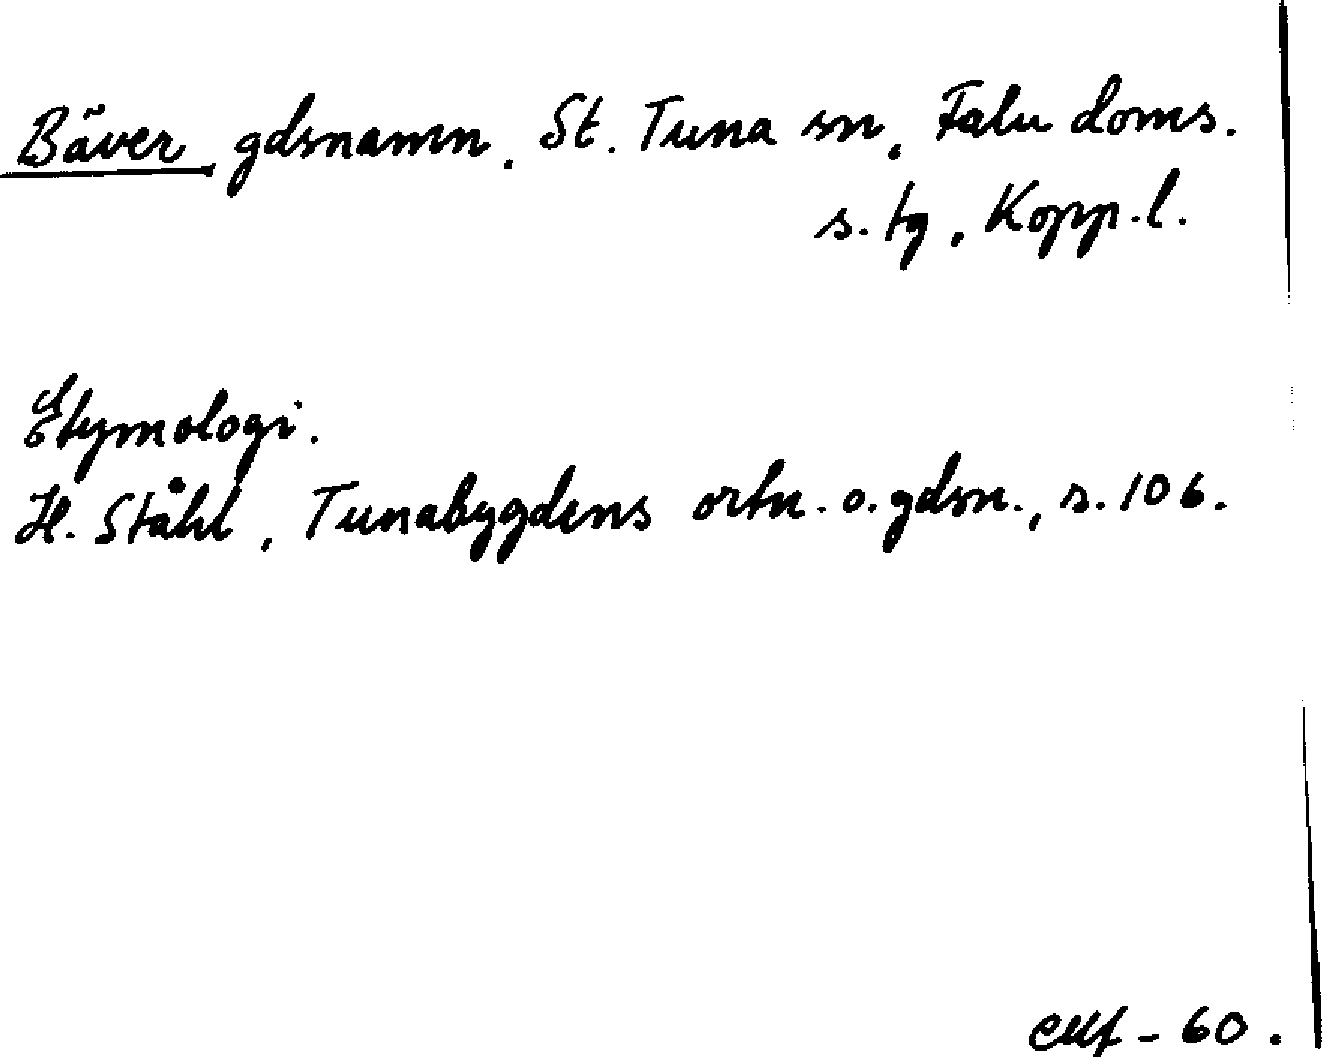 Bäver gdsnamn, St. Tuna sn, Falu doms.
s. tg, Kopp.l.
Etymologi.
H. Ståhl, Tunabygdens ortn. o. gdsn., s. 106.
- 60.